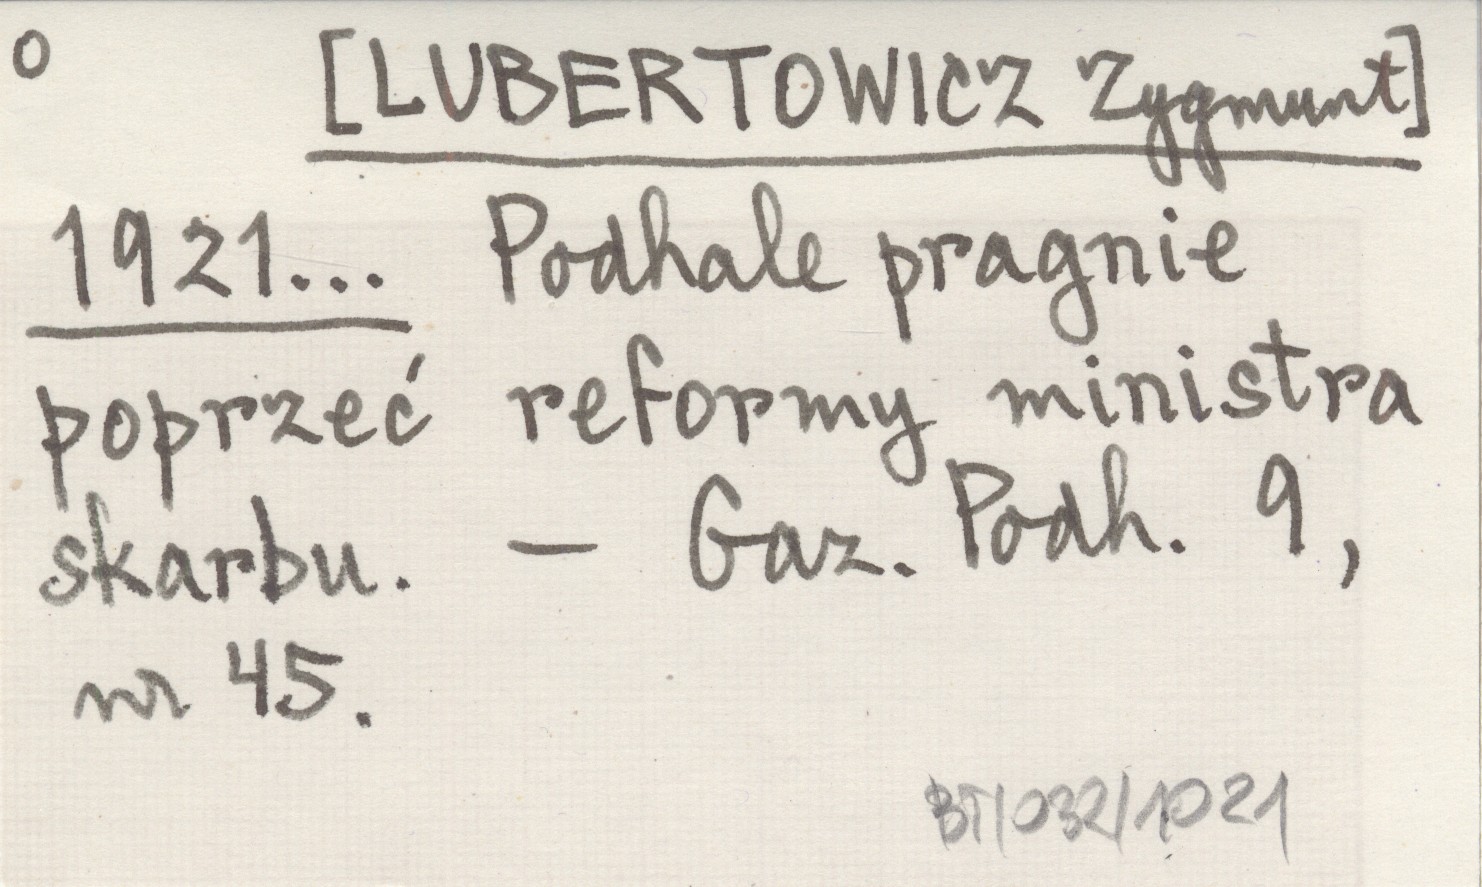 o [LUBERTOWICZ Zygmunt]
1921... Podhale pragnie
poprzeć reformy ministra
skarbu. – Gaz. Podh. 9,
nr 45.
BT/032/1021